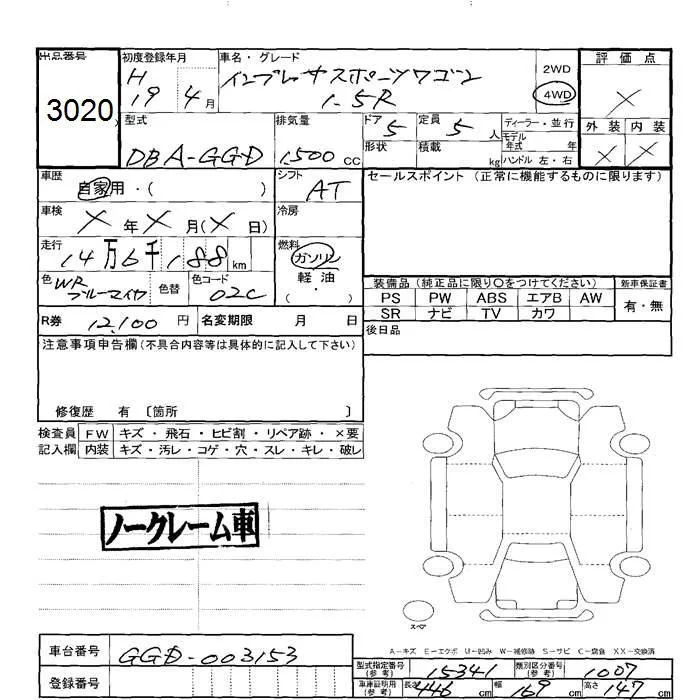 出品番号 初度登録年月 車名・グレード 評価点
3020 H19 4月 インプレッサスポーツワゴン 1.5R 2WD 4WD ×
外装 内装
× ×
型式 排気量 ドア 定員 ディーラー・並行
DBA-GGD 1,500 cc 5 5人 モデル年式 年
形状 積載 kg ハンドル 左・右
車歴 シフト セールスポイント (正常に機能するものに限ります)
自家用・( ) AT
車検 ×年×月(×日) 冷房
走行 14万6千188km 燃料 ガソリン
軽油
( ・ )
色 WRブルーマイカ 色替 色コード 02C
装備品 (純正品に限り○をつけてください) 新車保証書
PS PW ABS エアB AW 有・無
SR ナビ TV カワ
R券 12,100円 名変期限 月 日 後日品
注意事項申告欄(不具合内容等は具体的に記入して下さい)
修復歴 有 〔箇所 〕
検査員 FW キズ・飛石・ヒビ割・リペア跡・×要
記入欄 内装 キズ・汚レ・コゲ・穴・スレ・キレ・破レ
ノークレーム車
スペア
A-キズ E-エクボ U-凹み W-補修跡 S-サビ C-腐食 XX-交換済
車台番号 GGD-003153
登録番号
型式指定番号(参考) 15341 類別区分番号(参考) 1007
車庫証明用(参考) 長さ 446cm 幅 169cm 高さ 147cm